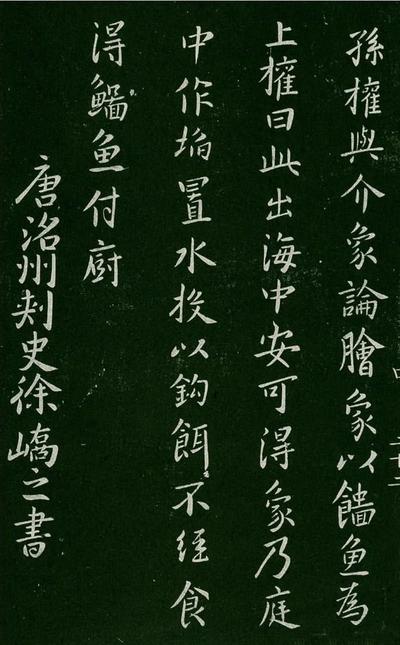 孫權與介象論膾象以鯔魚為
上權曰此出海中安可得象乃庭
中作埳置水投以鈎餌不經食
得鯔魚付廚
唐洺州刺史徐嶠之書